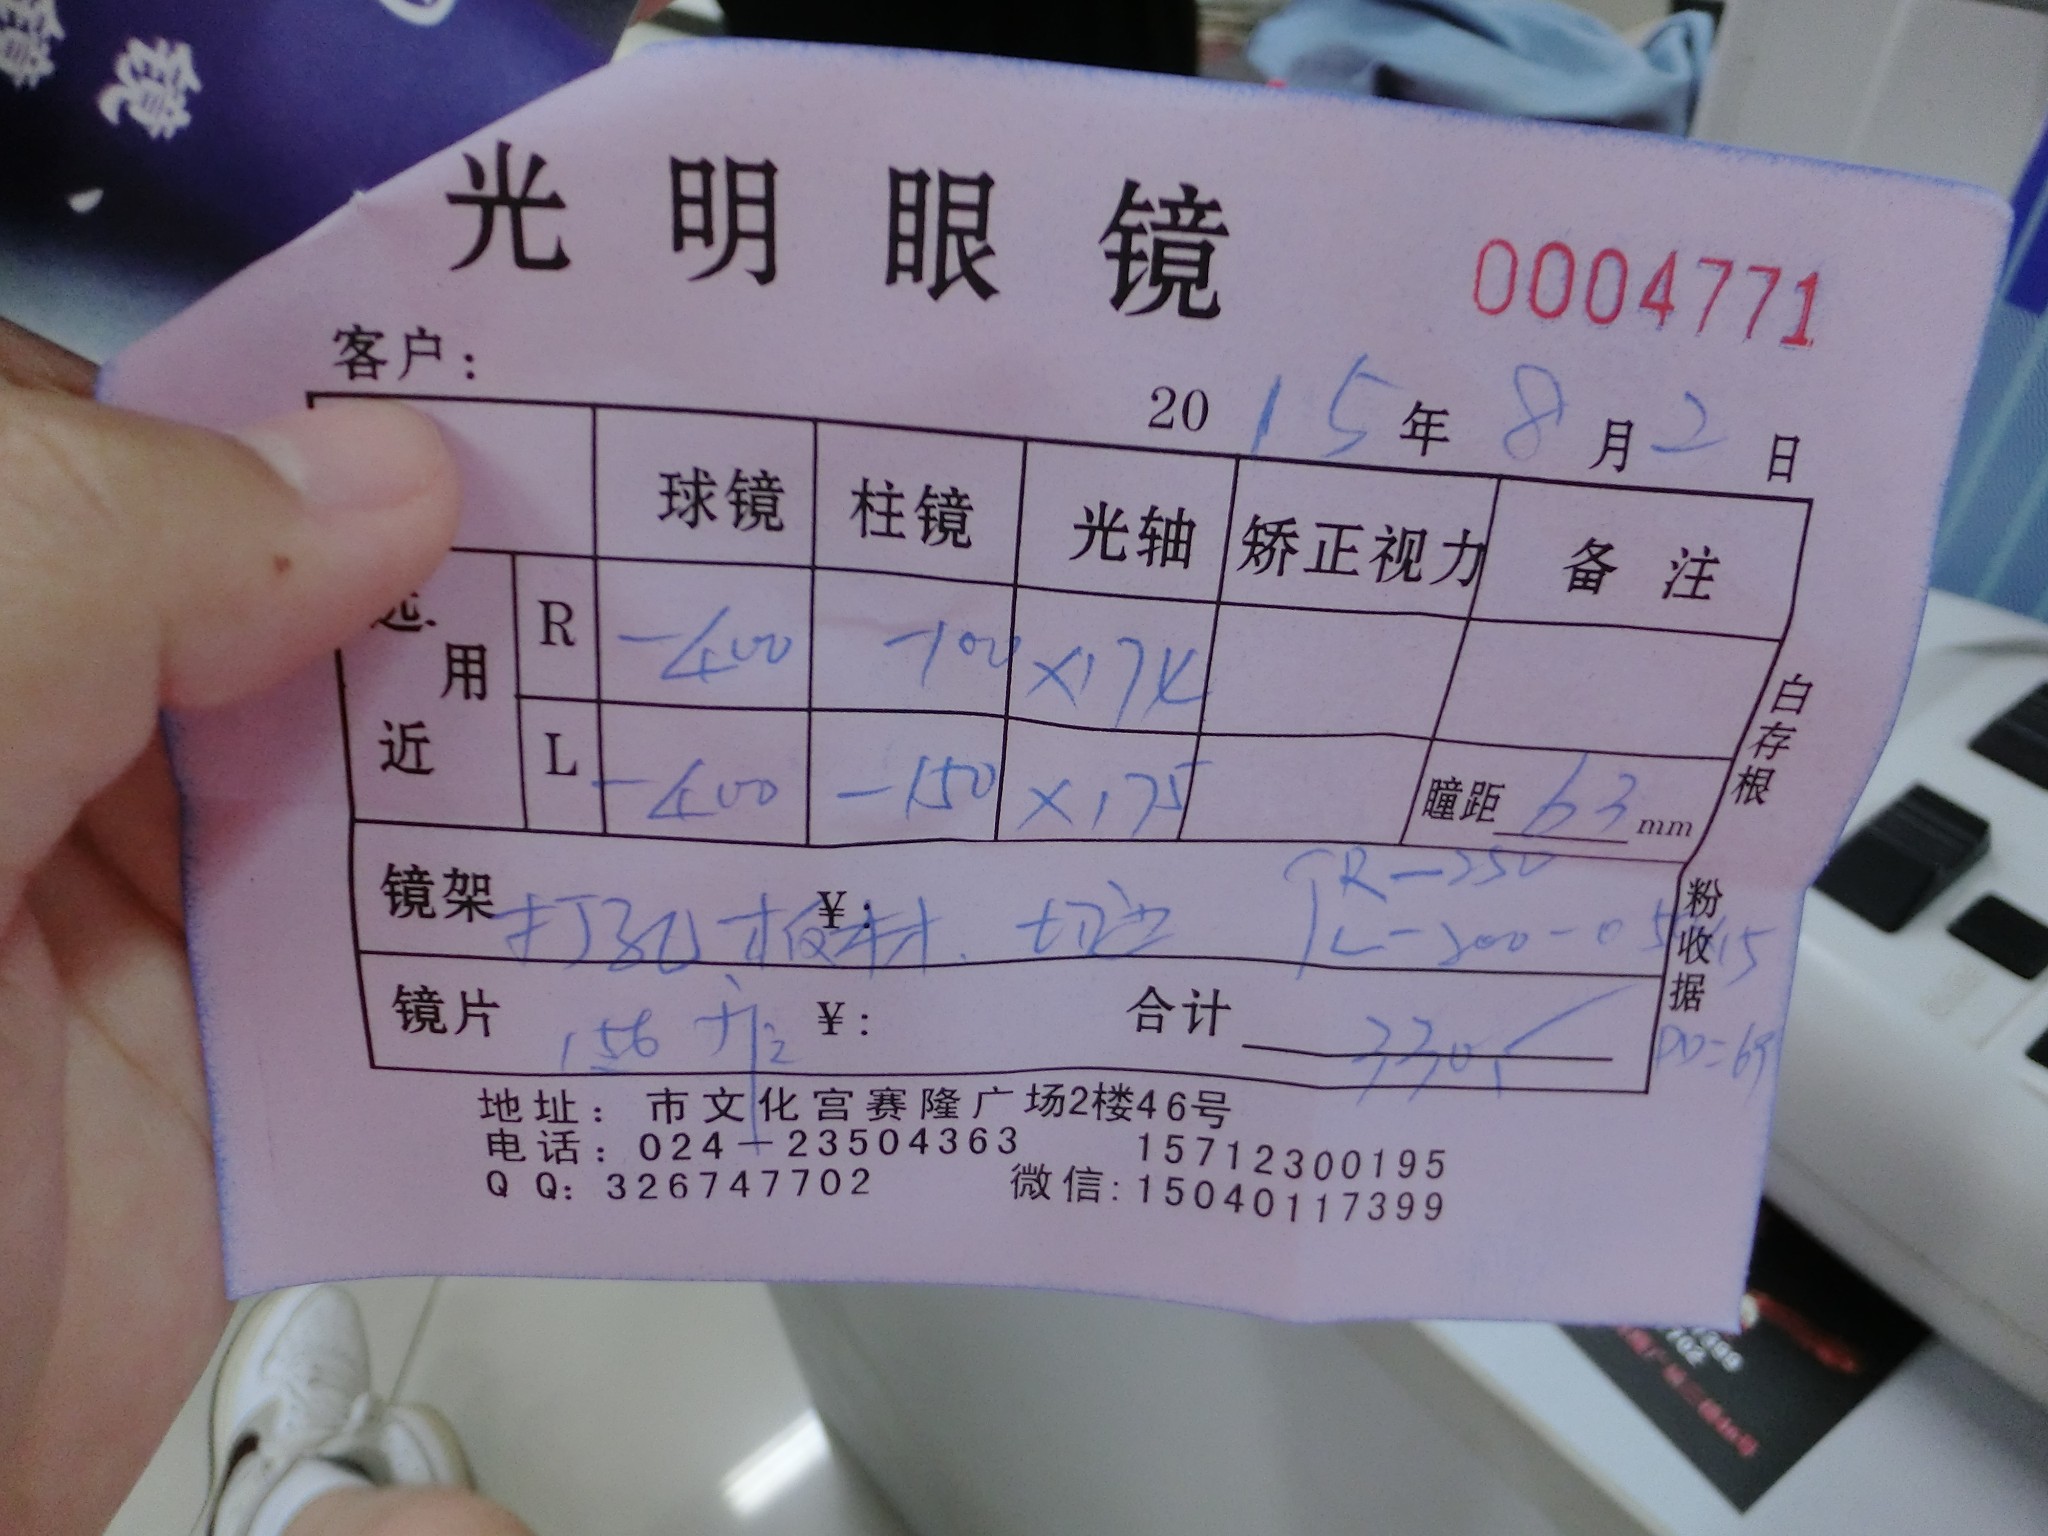 镜
光明眼镜
0004771
客户：
2015年8月2日
球镜 柱镜 光轴 矫正视力 备注
远 用 近
R -400 -100 ×174
L -400 -150 ×175 瞳距 63 mm
白存根
粉收据
镜架 打孔板材. 切边 ¥： R -250
L -200 -0.5
镜片 156 ¥： 合计
地址：市文化宫赛隆广场2楼46号
电话：024-23504363 15712300195
QQ：326747702 微信：15040117399